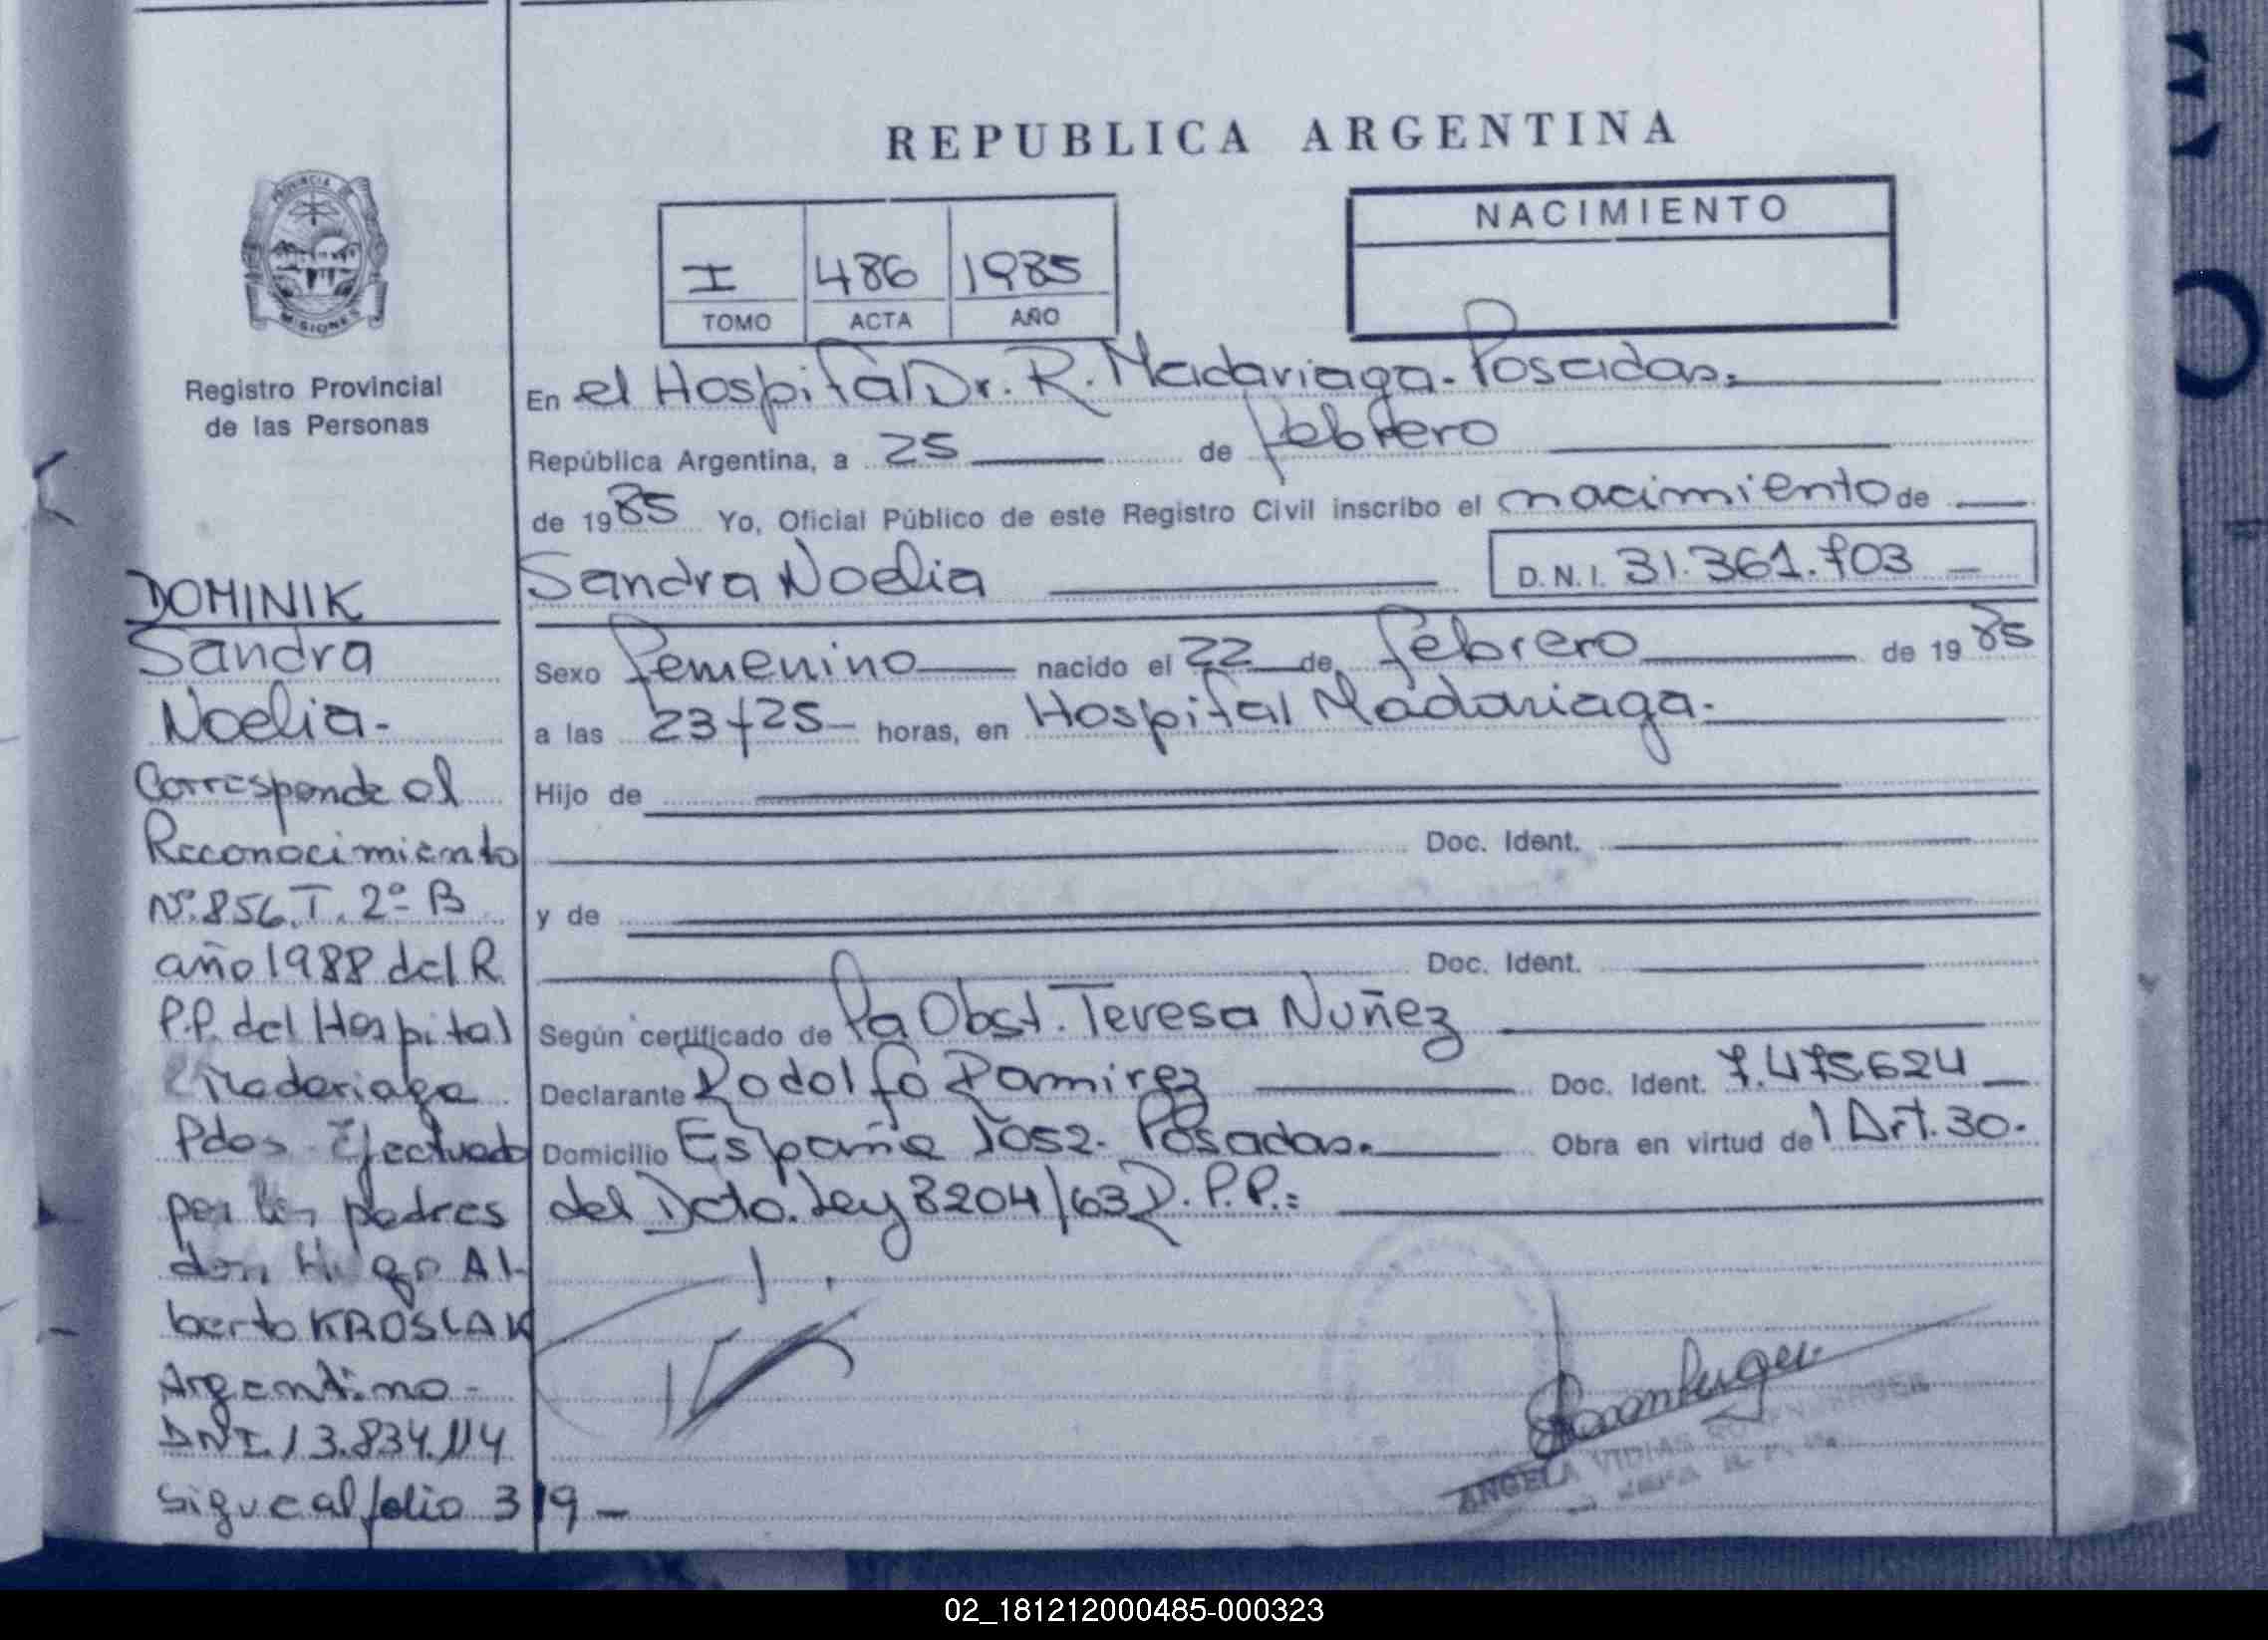 REPUBLICA ARGENTINA
PROVINCIA DE
MISIONES
Registro Provincial
de las Personas
I 486 1985
TOMO ACTA AÑO
NACIMIENTO
En el Hospital Dr. R. Madariaga. Posadas.
República Argentina, a 25 de febrero
de 1985 Yo, Oficial Público de este Registro Civil inscribo el nacimiento de
Sandra Noelia D.N.I. 31.361.703
Sexo femenino nacido el 22 de febrero de 1985
a las 23 y 25 horas, en Hospital Madariaga.
Hijo de
Doc. Ident.
y de
Doc. Ident.
Según certificado de Pa Obst. Teresa Nuñez
Declarante Rodolfo Ramirez Doc. Ident. 7.475.624
Domicilio España 1052. Posadas. Obra en virtud del Art. 30.
del Dcto. Ley 8204/63 D.P.P.=
DOMINIK
Sandra
Noelia-
Corresponde al
Reconocimiento
Nº.856.T. 2º B
año 1988 del R
P.P. del Hospital
Madariaga
Pdas Efectuado
por los padres
don Hugo Al-
berto KROSLAK
Argentino-
DNI.13.834.114
sigue al folio 319-
ANGELA VIDIAS
02_181212000485-000323